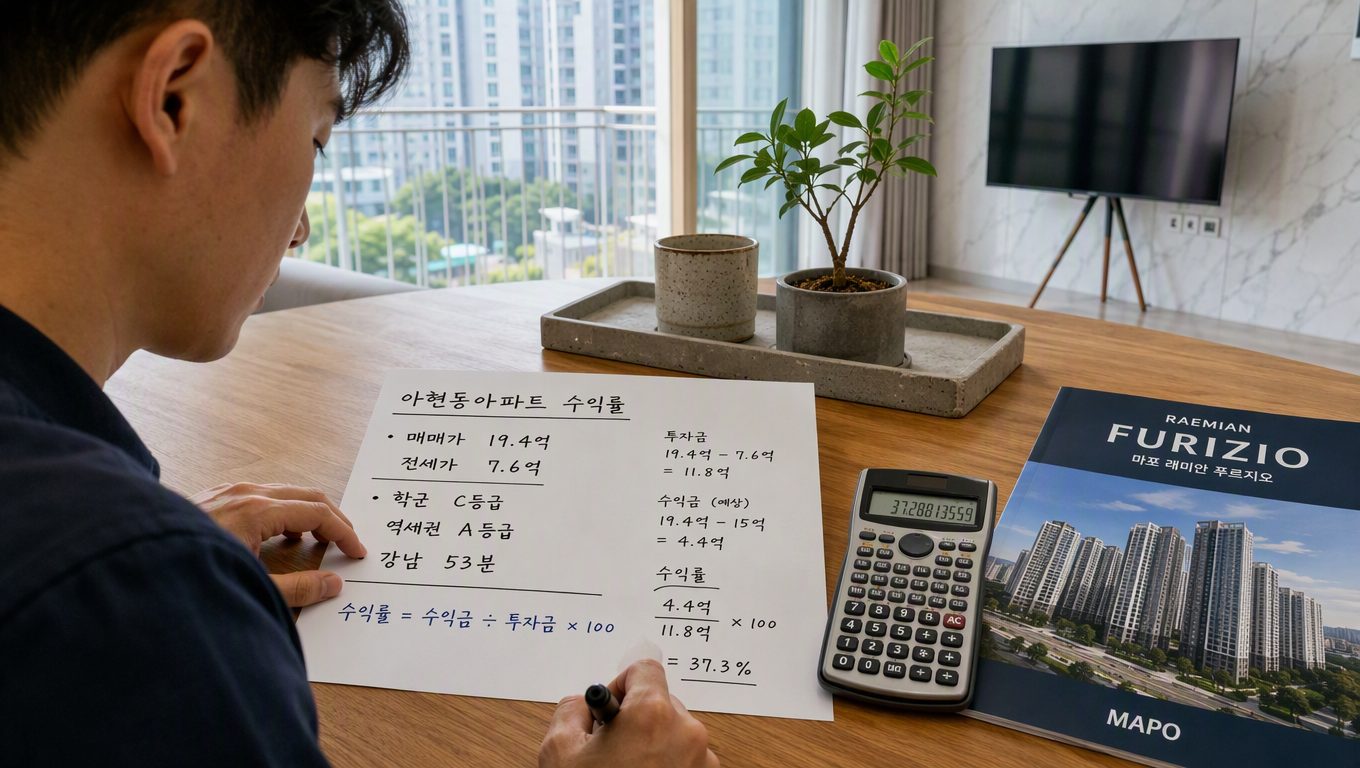 아현동아파트 수익률
• 매매가 19.4억
전세가 7.6억
• 학군 C등급
역세권 A등급
강남 53분
수익률 = 수익금 ÷ 투자금 × 100
투자금
19.4억 – 7.6억
= 11.8억
수익금 (예상)
19.4억 – 15억
= 4.4억
수익률
4.4억
11.8억
× 100
= 37.3%
37.28813559
7 8 9
AC
4 5 6
1 2 3
0
RAEMIAN
FURIZIO
마포 래미안 푸르지오
MAPO